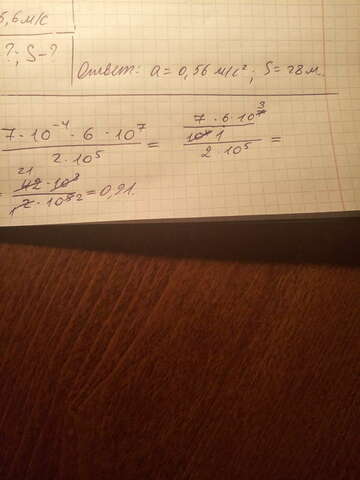 5,6 м/с
?; S-?
Ответ: a = 0,56 м/с²; S = 28 м.
7·10⁻⁴·6·10⁷ / 2·10⁵ = 7·6·10⁷ 3 / 10⁴ 1 / 2·10⁵ =
= 21 42·10³ / 1 2·10⁵ 2 = 0,21.